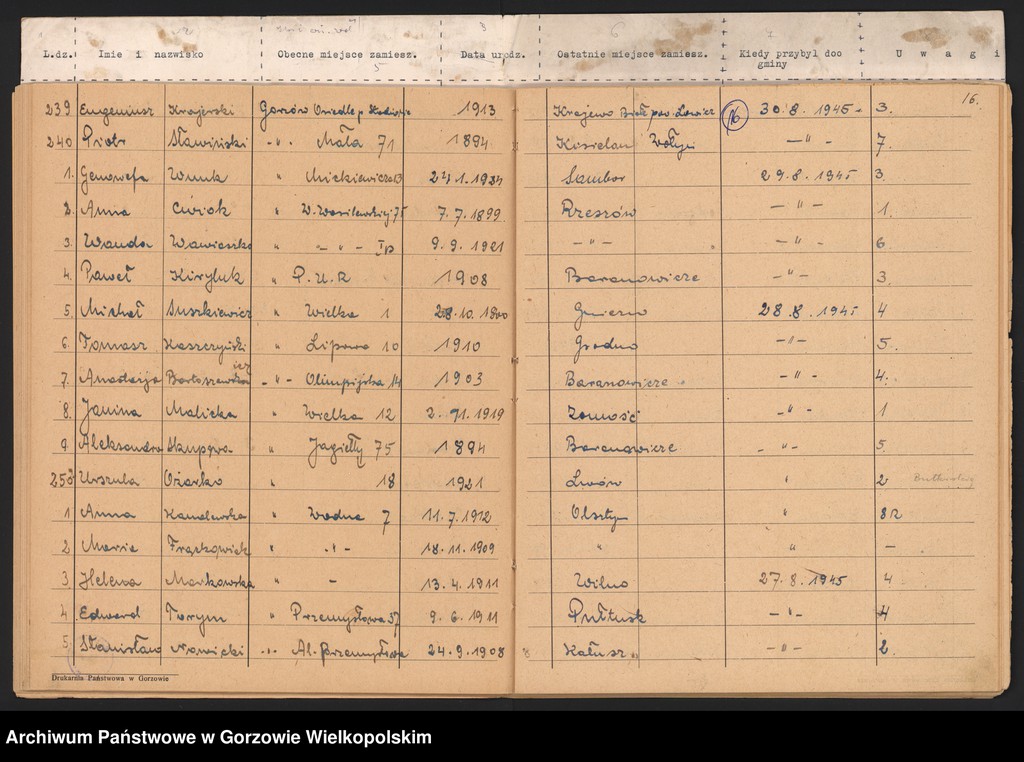 L.dz. Imie i nazwisko Obecne miejsce zamiesz. Data urodz. Ostatnie miejsce zamiesz. Kiedy przybył do gminy U w a g i
16.
239 Eugeniusz Krajerski Gorzów Osiedle p. 1913 Krajewo pow. Łowicz 16 30.8.1945 3.
240 Piotr Sławiński -"- Mała 71 1894 Wołyń -"- 7.
1. Genowefa Wnuk " Mickiewicza 13 1.1934 Sambor 29.8.1945 3.
2. Anna Ćwiok " W. Wasilewskiej 75 7.7.1899 Rzeszów -"- 1.
3. Wanda Wawieszko " -"- I p 9.9.1921 -"- -"- 6
4. Paweł Kiryluk " P.U.R 1908 Baranowicze -"- 3.
5. Michał Suszkiewicz " Wielka 1 28.10.1800 Gniezno 28.8.1945 4
6 Tomasz Kaszczyński " Lipowa 10 1910 Grodno -"- 5.
7. Bartoszewska -"- Olimpijska 14 1903 Baranowicze -"- 4.
8. Janina Malicka " Wielka 12 2.11.1919 Zamość -"- 1
9 Aleksandra Skupewa " Jagiełły 75 1894 Baranowicze "- 5.
250 Urszula Ożarko " 18 1921 Lwów " 2
1 Anna Kowalewska " Wodna 7 11.7.1912 Olsztyn " 82
2 Maria Frąckowiak " -"- 18.11.1909 " " -
3. Helena Markowska " - 13.4.1911 Wilno 27.8.1945 4
4 Edward Torym " Przemysłowa 37 9.6.1911 Pułtusk -"- 4
5. Stanisław Nowicki -"- Al. Przemysłowa 24.9.1908 Kałusz -"- 2.
Drukarnia Państwowa w Gorzowie
Archiwum Państwowe w Gorzowie Wielkopolskim